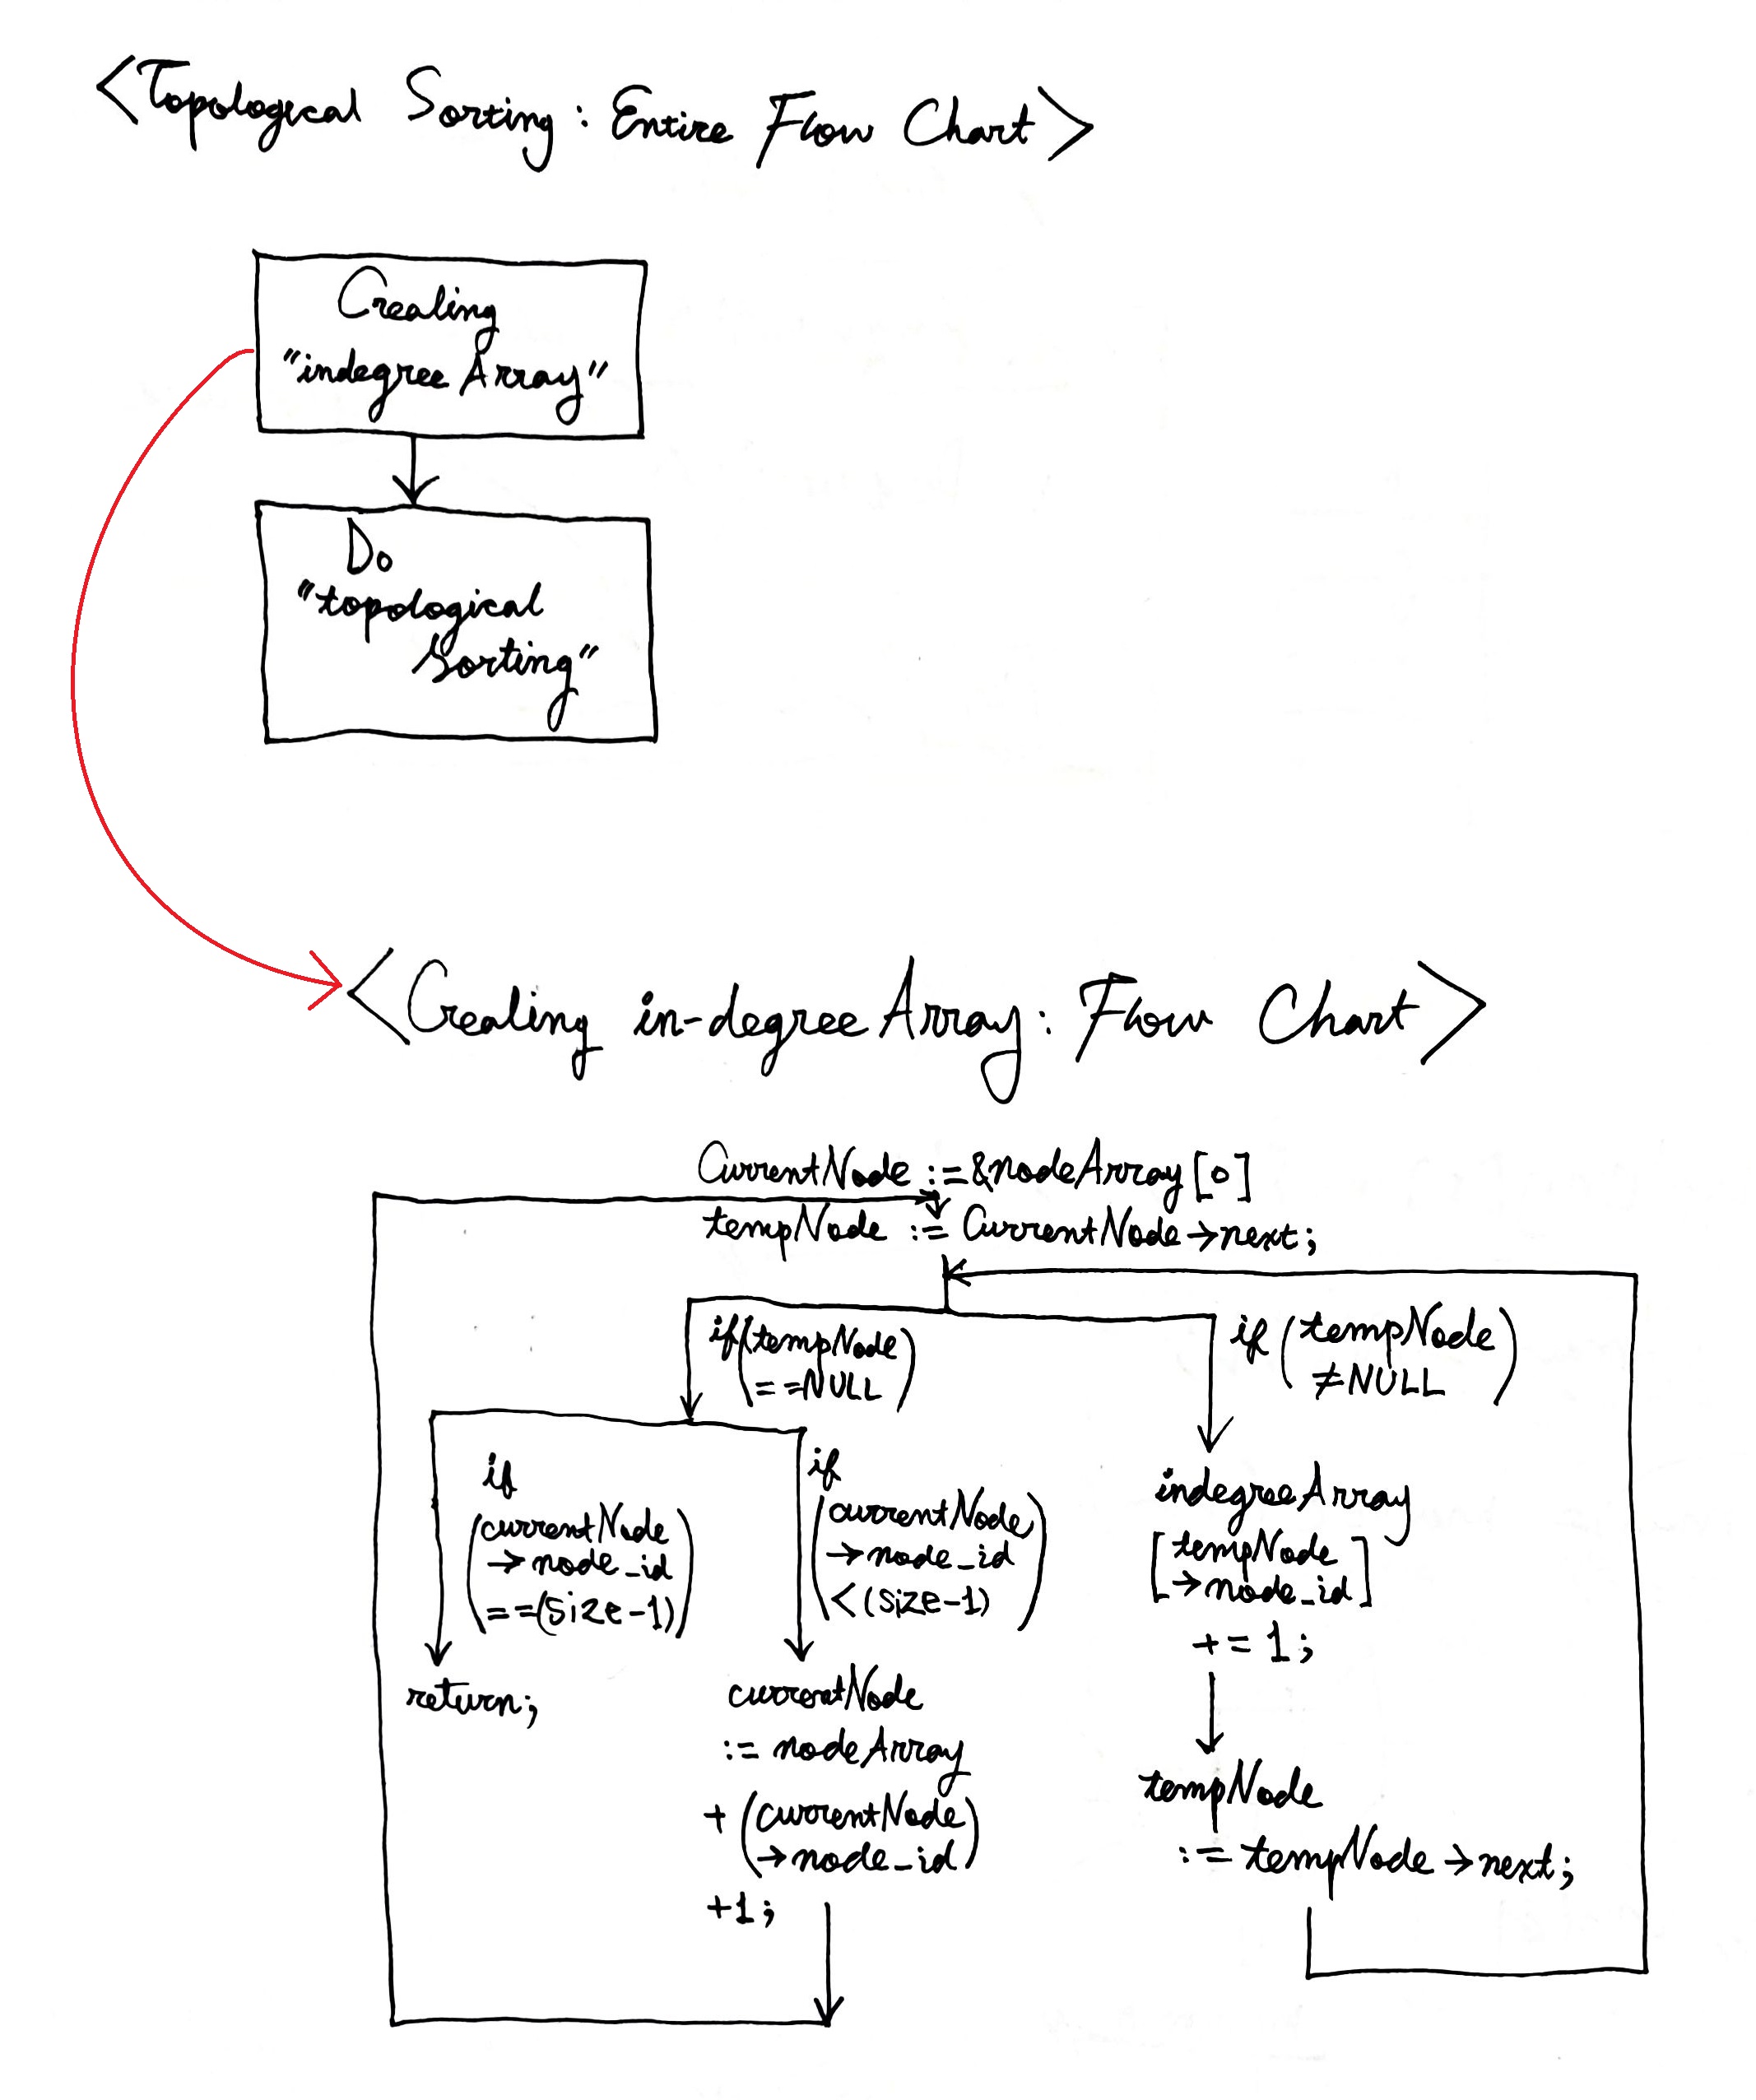 <Topological Sorting : Entire Flow Chart>
Creating
"indegree Array"
Do
"topological
Sorting"
<Creating in-degree Array : Flow Chart>
CurrentNode :=&nodeArray[0]
tempNode := CurrentNode→next;
if(tempNode
==NULL)
if (tempNode
≠NULL)
if
(currentNode
→node_id
==(size-1))
return;
if
(currentNode
→node_id
<(size-1))
currentNode
:= nodeArray
+ (currentNode
→node_id)
+1;
indegreeArray
[tempNode
→node_id]
+= 1;
tempNode
:= tempNode→next;